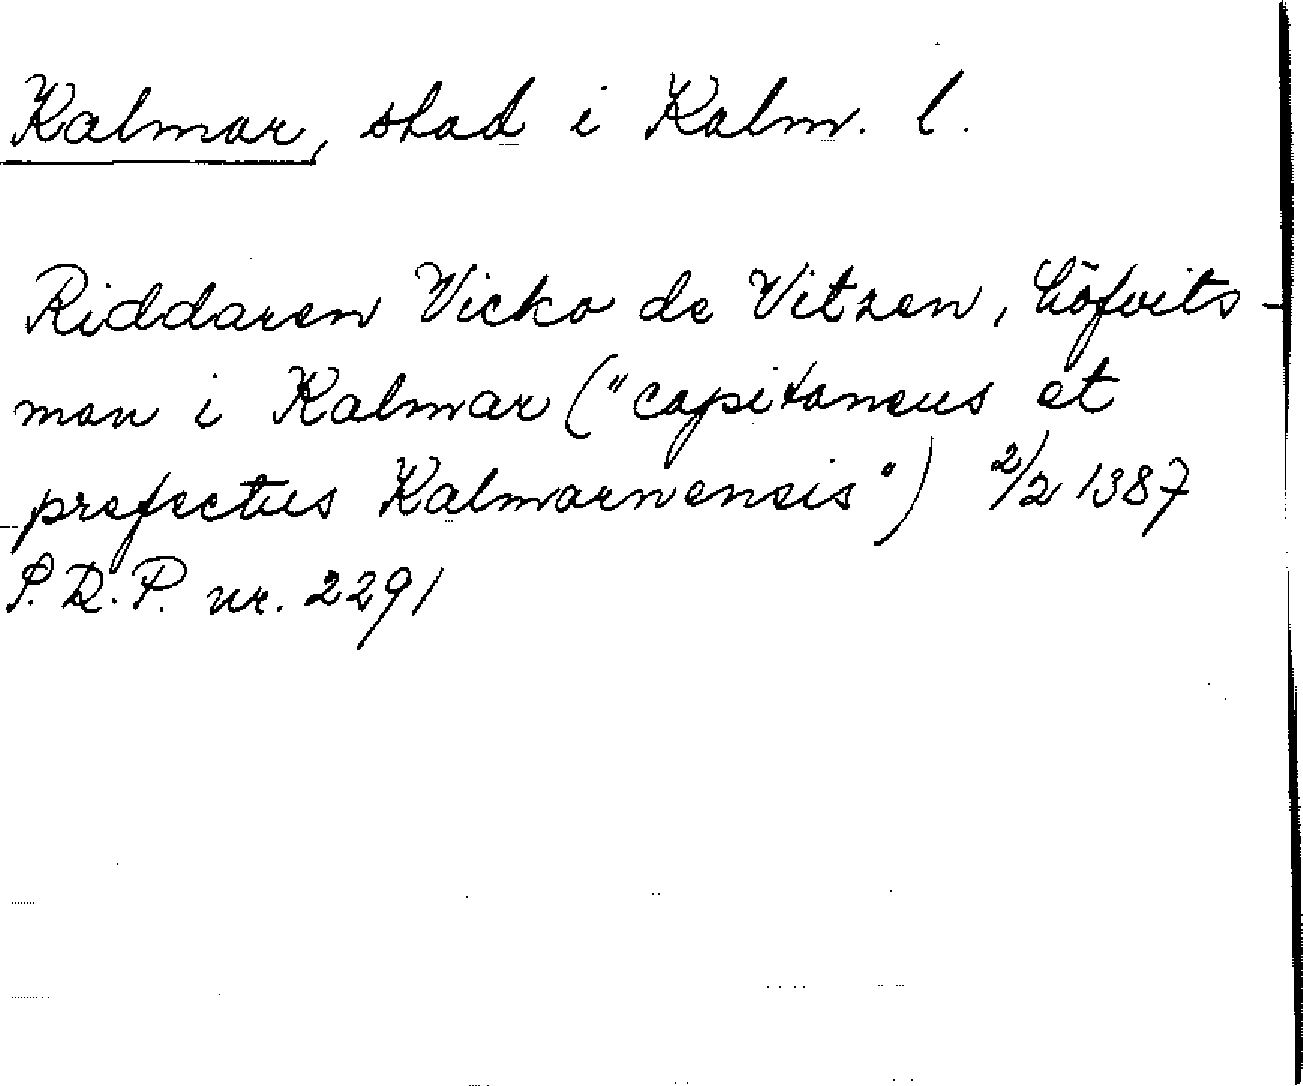 Kalmar, stad i Kalm. l.
Riddaren Vicko de Vitzen, höfvits-
man i Kalmar ("capitaneus et
prefectus Kalmarnensis") 2/2 1387
S.R.P. nr. 2291